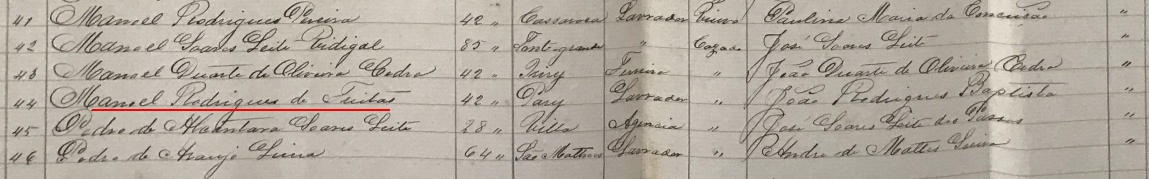 41 Manoel Rodrigues Pereira 42 " Lavrador Viuvo Paulina Maria da Conceisão "
42 Manoel Soares Leite Vidigal 85 " Ponte-grande " Cazado José Soares Leite "
43 Manoel Duarte de Oliveira Cedro 42 " Pary Ferreiro " João Duarte de Oliveira Cedro "
44 Manoel Rodrigues de Freitas 42 " Pary Lavrador " João Rodrigues Baptista "
45 Pedro de Alcantara Soares Leite 28 " Villa Agencia " José Soares Leite dos Passos "
46 Pedro de Araujo Lima 64 " São Matheus Lavrador " Andre de Mattos "